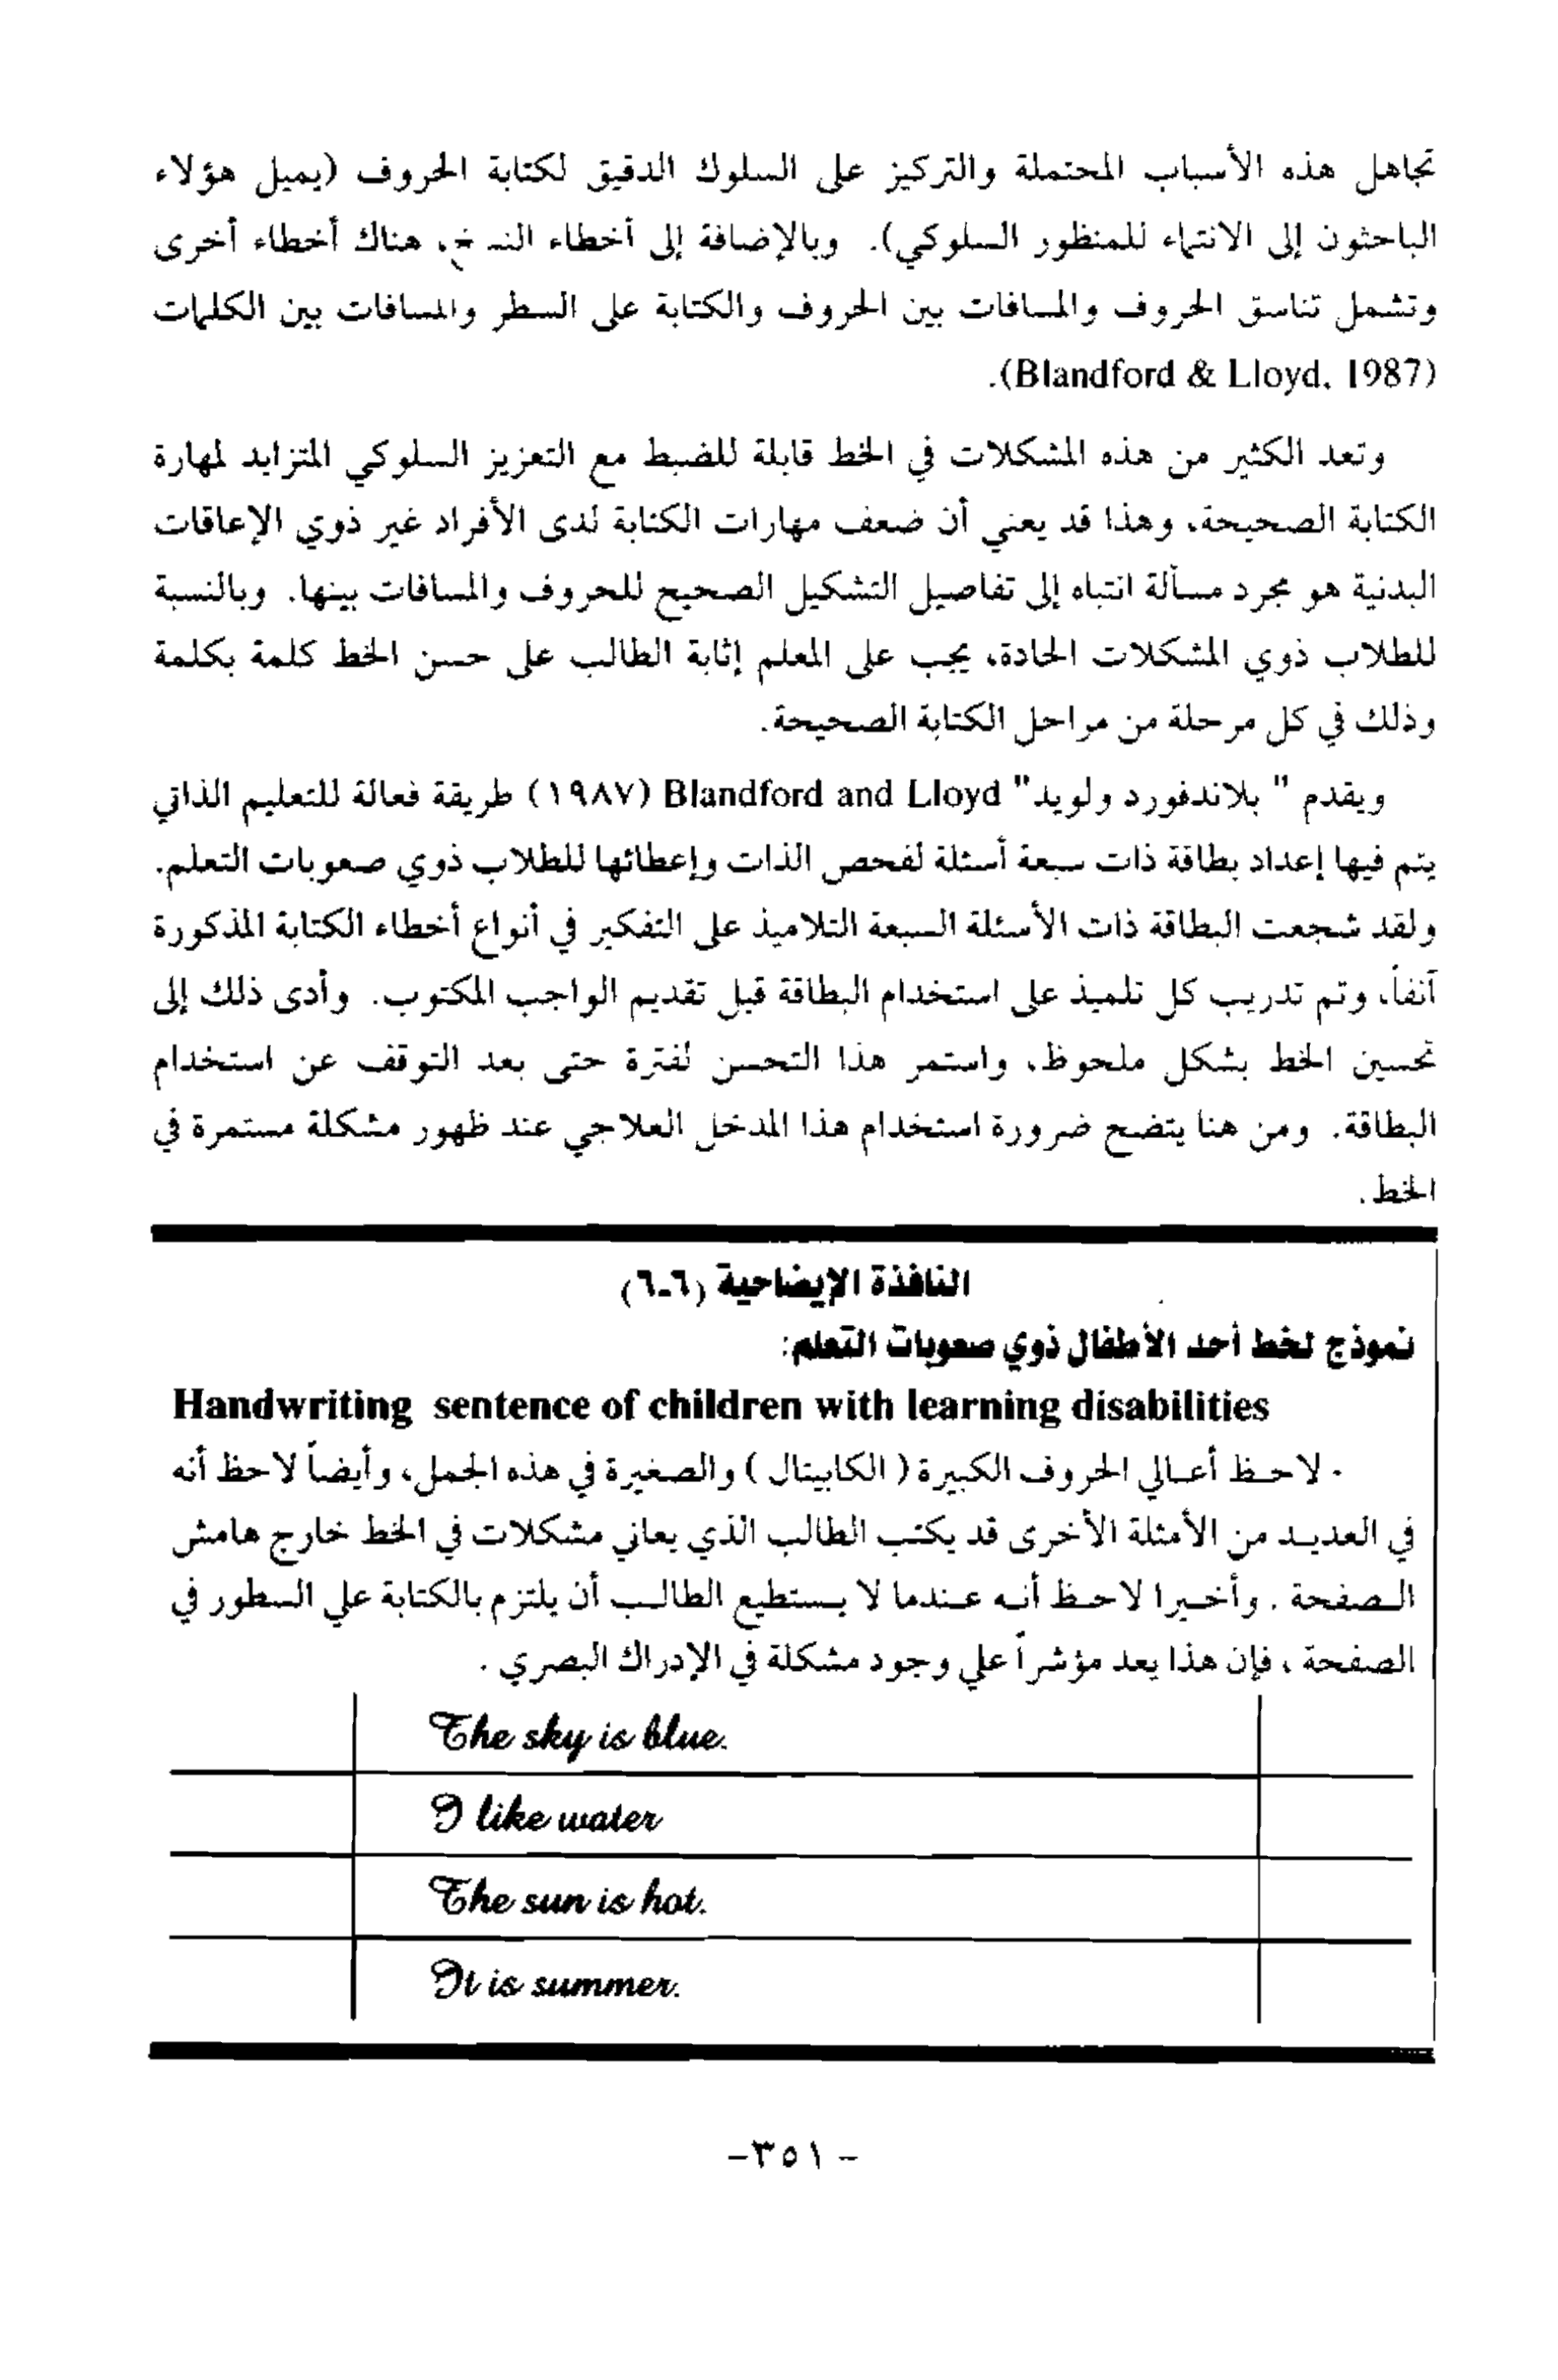 تجاهل هذه الأسباب المحتملة والتركيز على السلوك الدقيق لكتابة الحروف (يميل هؤلاء
الباحثون إلى الانتماء للمنظور السلوكي). وبالإضافة إلى أخطاء النسخ، هناك أخطاء أخرى
وتشمل تناسق الحروف والمسافات بين الحروف والكتابة على السطر والمسافات بين الكلمات
(Blandford & Lloyd, 1987).
وتعد الكثير من هذه المشكلات في الخط قابلة للضبط مع التعزيز السلوكي المتزايد لمهارة
الكتابة الصحيحة، وهذا قد يعني أن ضعف مهارات الكتابة لدى الأفراد غير ذوي الإعاقات
البدنية هو مجرد مسألة انتباه إلى تفاصيل التشكيل الصحيح للحروف والمسافات بينها. وبالنسبة
للطلاب ذوي المشكلات الحادة، يجب على المعلم إثابة الطالب على حسن الخط كلمة بكلمة
وذلك في كل مرحلة من مراحل الكتابة الصحيحة.
ويقدم " بلاندفورد ولويد" Blandford and Lloyd (١٩٨٧) طريقة فعالة للتعليم الذاتي
يتم فيها إعداد بطاقة ذات سبعة أسئلة لفحص الذات وإعطائها للطلاب ذوي صعوبات التعلم.
ولقد شجعت البطاقة ذات الأسئلة السبعة التلاميذ على التفكير في أنواع أخطاء الكتابة المذكورة
آنفاً، وتم تدريب كل تلميذ على استخدام البطاقة قبل تقديم الواجب المكتوب. وأدى ذلك إلى
تحسين الخط بشكل ملحوظ، واستمر هذا التحسن لفترة حتى بعد التوقف عن استخدام
البطاقة. ومن هنا يتضح ضرورة استخدام هذا المدخل العلاجي عند ظهور مشكلة مستمرة في
الخط.
النافذة الإيضاحية (٦-٦)
نموذج لخط أحد الأطفال ذوي صعوبات التعلم:
Handwriting sentence of children with learning disabilities
. لاحظ أعالي الحروف الكبيرة ( الكابيتال ) والصغيرة في هذه الجمل، وأيضاً لاحظ أنه
في العديد من الأمثلة الأخرى قد يكتب الطالب الذي يعاني مشكلات في الخط خارج هامش
الصفحة . وأخيرا لاحظ أنه عندما لا يستطيع الطالب أن يلتزم بالكتابة علي السطور في
الصفحة ، فإن هذا يعد مؤشراً علي وجود مشكلة في الإدراك البصري .
The sky is blue.
I like water
The sun is hot.
It is summer.
-٣٥١ -